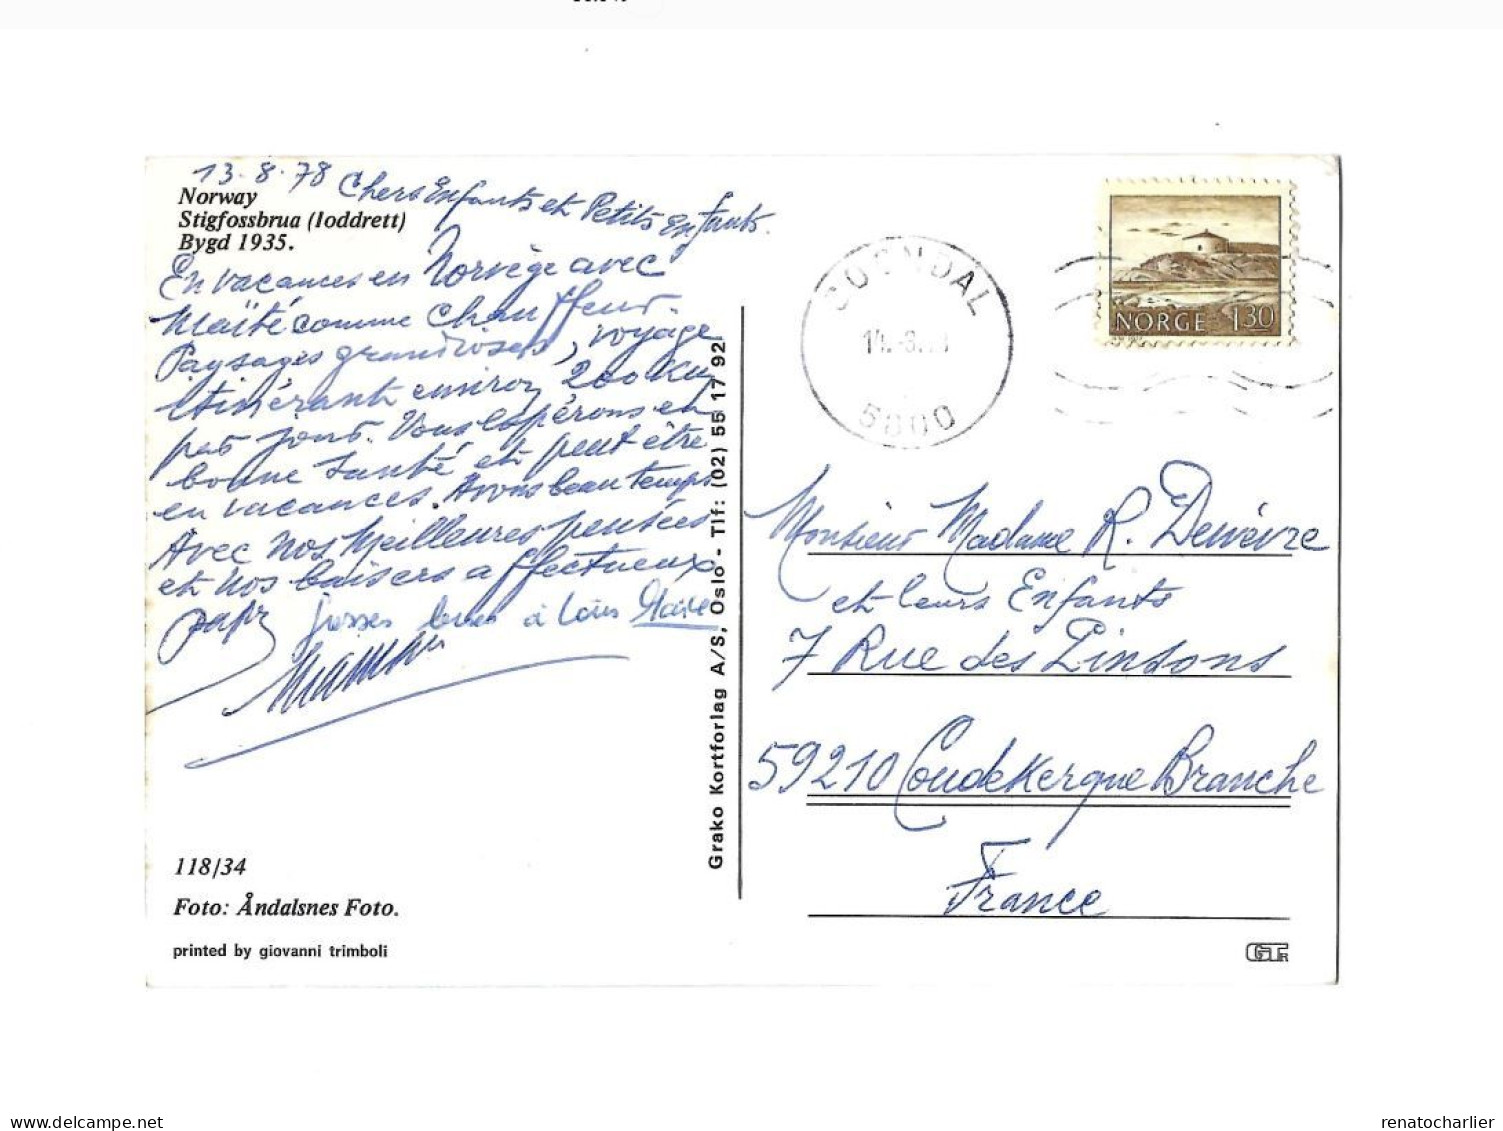 13.8.78 Chers Enfants et Petits enfants.
Norway
Stigfossbrua (Ioddrett)
Bygd 1935.
En vacances en Norvège avec
Maïté comme chauffeur.
Paysages grandioses, voyage
itinérant environ 200 Km
par jour. Vous espérons en
bonne santé et peut être
en vacances. Avons beau temps
Avec nos meilleures pensées
et nos baisers affectueux
papy grosses bises à Loïs
Mamy
118/34
Foto: Åndalsnes Foto.
printed by giovanni trimboli
Grako Kortforlag A/S, Oslo - Tlf: (02) 55 17 92
SOGNDAL
14.-8.
5800
NORGE 1 30
Monsieur Madame R. Dewèvre
et leurs Enfants
7 Rue des Pinsons
59210 Coudekerque Branche
France
GTR
delcampe.net
renatocharlier